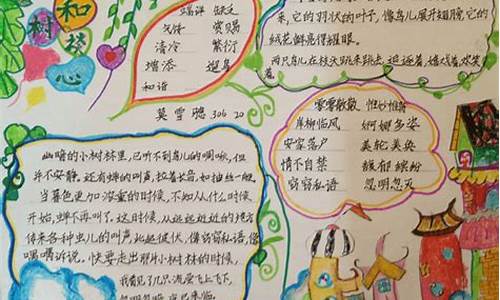 树
和
端详 缺乏
赏赐
清冷 繁衍
增添
和谐
莫雪 306 20
来,它的羽状的叶子,像鸟儿展开翅膀,它的
绒花鲜亮得耀眼。
两只鸟儿在枝头跳来跳去,追逐着,嬉戏着,欢笑
着。
零零散散 惟妙惟肖
岸柳临风 婀娜多姿
安家落户 美轮美奂
情不自禁 馥郁缤纷
窃窃私语 忽明忽灭
幽暗的小树林里,已听不到鸟儿的啁啾,但
并不安静。还有蝉的叫声,拉着长音,如抽丝一般。
当暮色更加浓重的时候,不知从什么时候
开始,蝉不再叫了。这时候,从远远近近的地方
传来各种虫儿的叫声,此起彼伏,像窃窃私语,像
喁喁诉说。快要走出那片小树林的时候,
我看见了几只流萤飞上飞下,